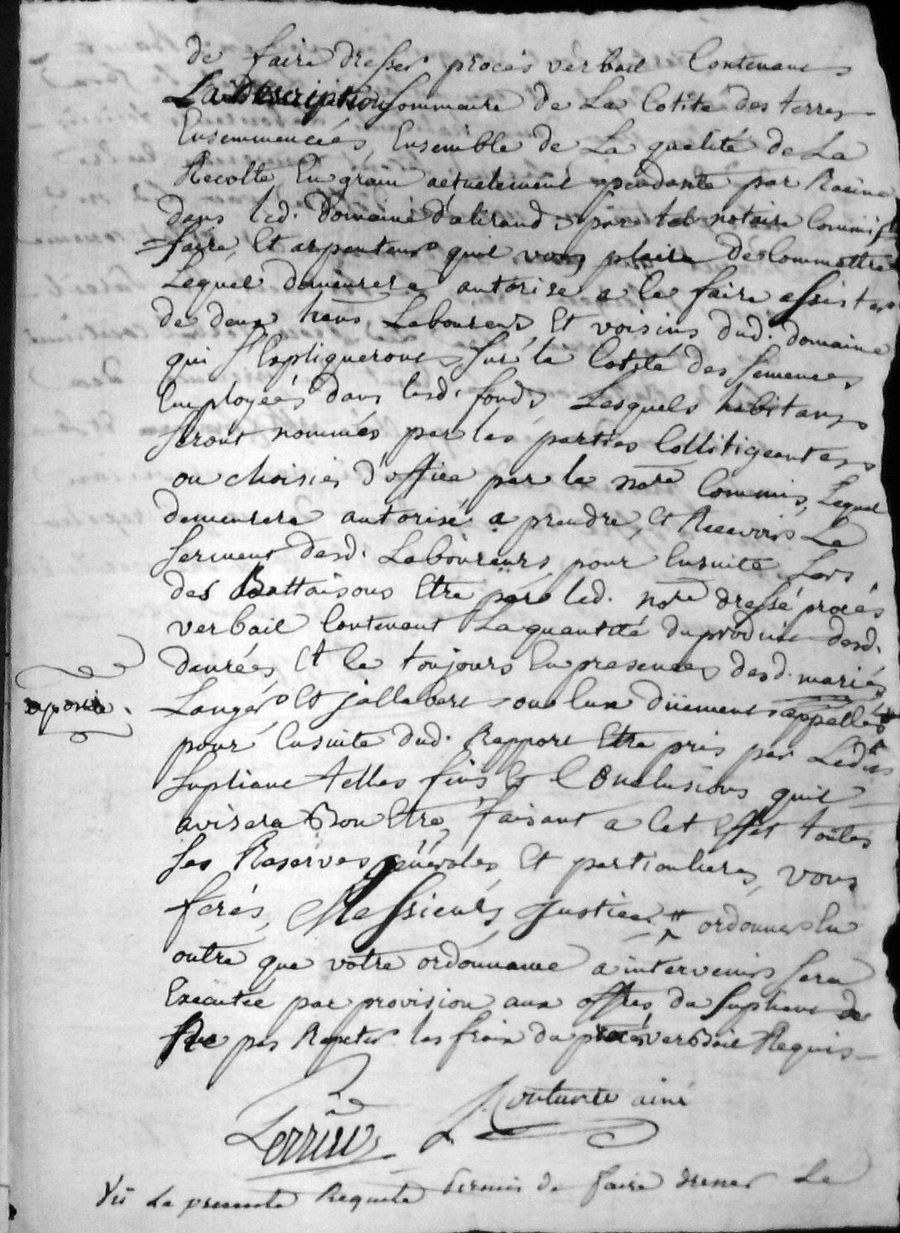 de faire dresser procés verbail Contenant
La Description Sommaire de La Cotité des terres
Ensemmencées, Ensemble de La qualité de La
Recolte En grain actuelement pendante par Racine
dans led. domaine d'alirand, par tel notaire Commis
faire Et arpenteur quil vous plaira de Commettre
Lequel demeurera autorisé a le faire assister
de deux Laboureurs Et voisins dud. domaine
qui S'Expliqueront Sur la Cotité des Semences
Employées dans lesd. fonds Lesquels habitans
Seront nommés par les parties Collitigeantes
ou choisies d'office par le notre Commis, Lequel
demeurera autorisé a prendre, Et Recevoir Le
Serment desd. Laboureurs pour Ensuite Lors
des Battaisons Etre par led. notre dressé procés
verbail Contenant La quantité du produit desd.
danrées Et le toujours En presences desd. mariés
aposté. Langer Et jallabert ou Eux düement appellés
pour Ensuite dud. Rapport Etre pris par Led.
Supliant telles fins Et Conclusions quil
avisera Bon Etre, faisant a Cet Effet toutes
Ses Reserves générales Et particulieres, vous
ferés, Messieurs, Justice, ordonner En
outre que votre ordonnance a intervenir Sera
Executée par provision aux offres du Supliant de
Ne pas Repeter les fraix du procésverbail Requis
ainé
Vu La presente Requete permis de faire dresser Le